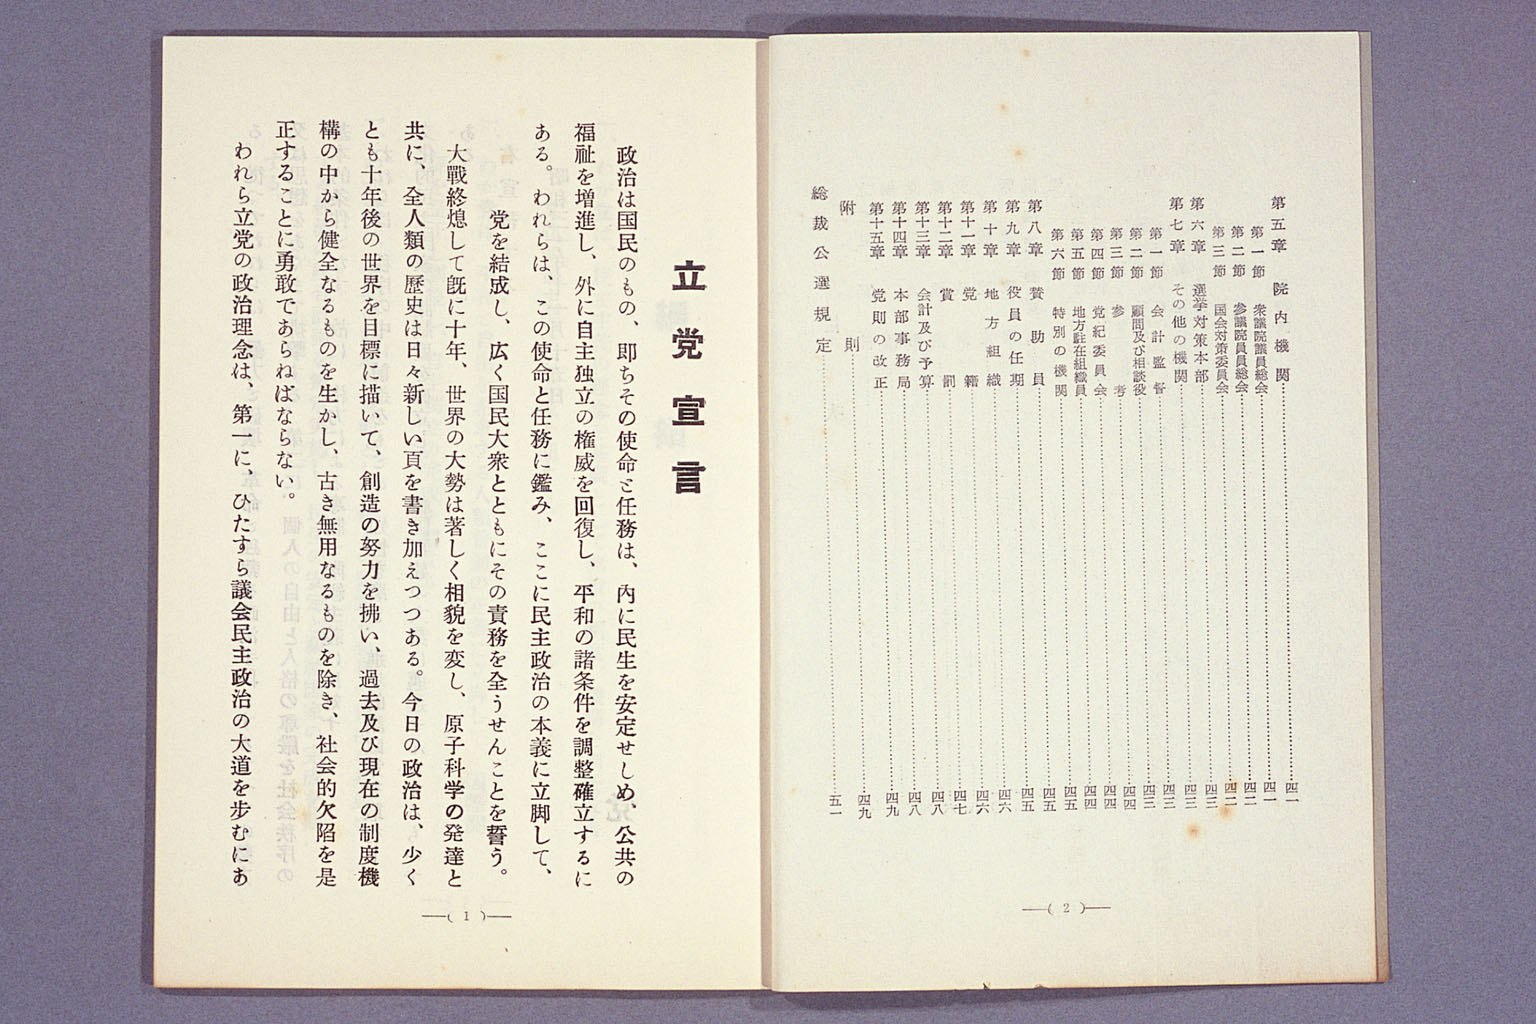 第五章 院内機関……四一
第一節 衆議院議員総会……四一
第二節 参議院議員総会……四二
第三節 国会対策委員会……四二
第六章 選挙対策本部……四三
第七章 その他の機関……四三
第一節 会計監督……四三
第二節 顧問及び相談役……四三
第三節 参考……四四
第四節 党紀委員会……四四
第五節 地方駐在組織員……四四
第六節 特別の機関……四五
第八章 賛助員……四五
第九章 役員の任期……四五
第十章 地方組織……四六
第十一章 党籍……四六
第十二章 賞罰……四七
第十三章 会計及び予算……四八
第十四章 本部事務局……四八
第十五章 党則の改正……四九
附則……四九
総裁公選規定……五一
—( 2 )—
立党宣言
政治は国民のもの、即ちその使命と任務は、内に民生を安定せしめ、公共の
福祉を増進し、外に自主独立の権威を回復し、平和の諸条件を調整確立するに
ある。われらは、この使命と任務に鑑み、ここに民主政治の本義に立脚して、
党を結成し、広く国民大衆とともにその責務を全うせんことを誓う。
大戰終熄して既に十年、世界の大勢は著しく相貌を変し、原子科学の発達と
共に、全人類の歷史は日々新しい頁を書き加えつつある。今日の政治は、少く
とも十年後の世界を目標に描いて、創造の努力を拂い、過去及び現在の制度機
構の中から健全なるものを生かし、古き無用なるものを除き、社会的欠陥を是
正することに勇敢であらねばならない。
われら立党の政治理念は、第一に、ひたすら議会民主政治の大道を歩むにあ
—( 1 )—